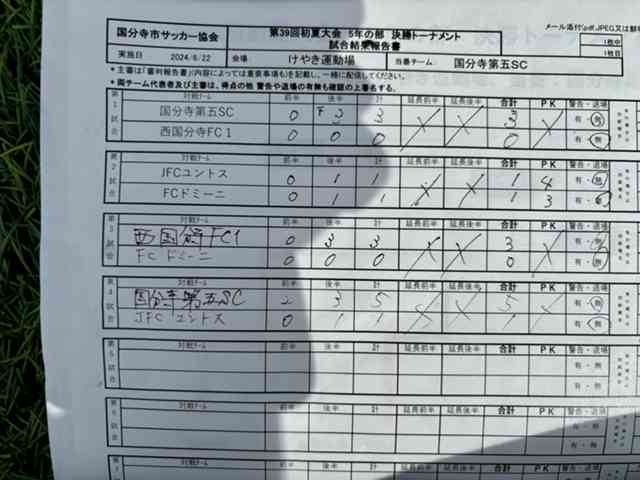 メール添付(pdf,JPEG又は鮮
国分寺市サッカー協会 第39回初夏大会 5年の部 決勝トーナメント
試合結果報告書
1枚中
1枚目
実施日 2024/6/22 会場 けやき運動場 当番チーム 国分寺第五SC
*主審は「審判報告書」(内容によっては重要事項も)を記載し、一緒に配信してください。
*両チーム代表者及び主審は、得点の他 警告や退場の有無も確認の上署名する。
第1試合 対戦チーム 前半 後半 計 延長前半 延長後半 合計 PK 警告・退場
国分寺第五SC 0 3 3 3 有・無
西国分寺FC1 0 0 0 0 有・無
第2試合 対戦チーム 前半 後半 計 延長前半 延長後半 合計 PK 警告・退場
JFCユントス 0 1 1 1 4 有・無
FCドミーニ 0 1 1 1 3 有・無
第3試合 対戦チーム 前半 後半 計 延長前半 延長後半 合計 PK 警告・退場
西国分寺FC1 0 3 3 3 有・無
FCドミーニ 0 0 0 0 有・無
第4試合 対戦チーム 前半 後半 計 延長前半 延長後半 合計 PK 警告・退場
国分寺第五SC 2 3 5 5 有・無
JFCユントス 0 1 1 1 有・無
第5試合 対戦チーム 前半 後半 計 延長前半 延長後半 合計 PK 警告・退場
有・無
有・無
第6試合 対戦チーム 前半 後半 計 延長前半 延長後半 合計 PK 警告・退場
有・無
有・無
第7 対戦チーム 前半 後半 計 延長前半 延長後半 合計 PK 警告・退場